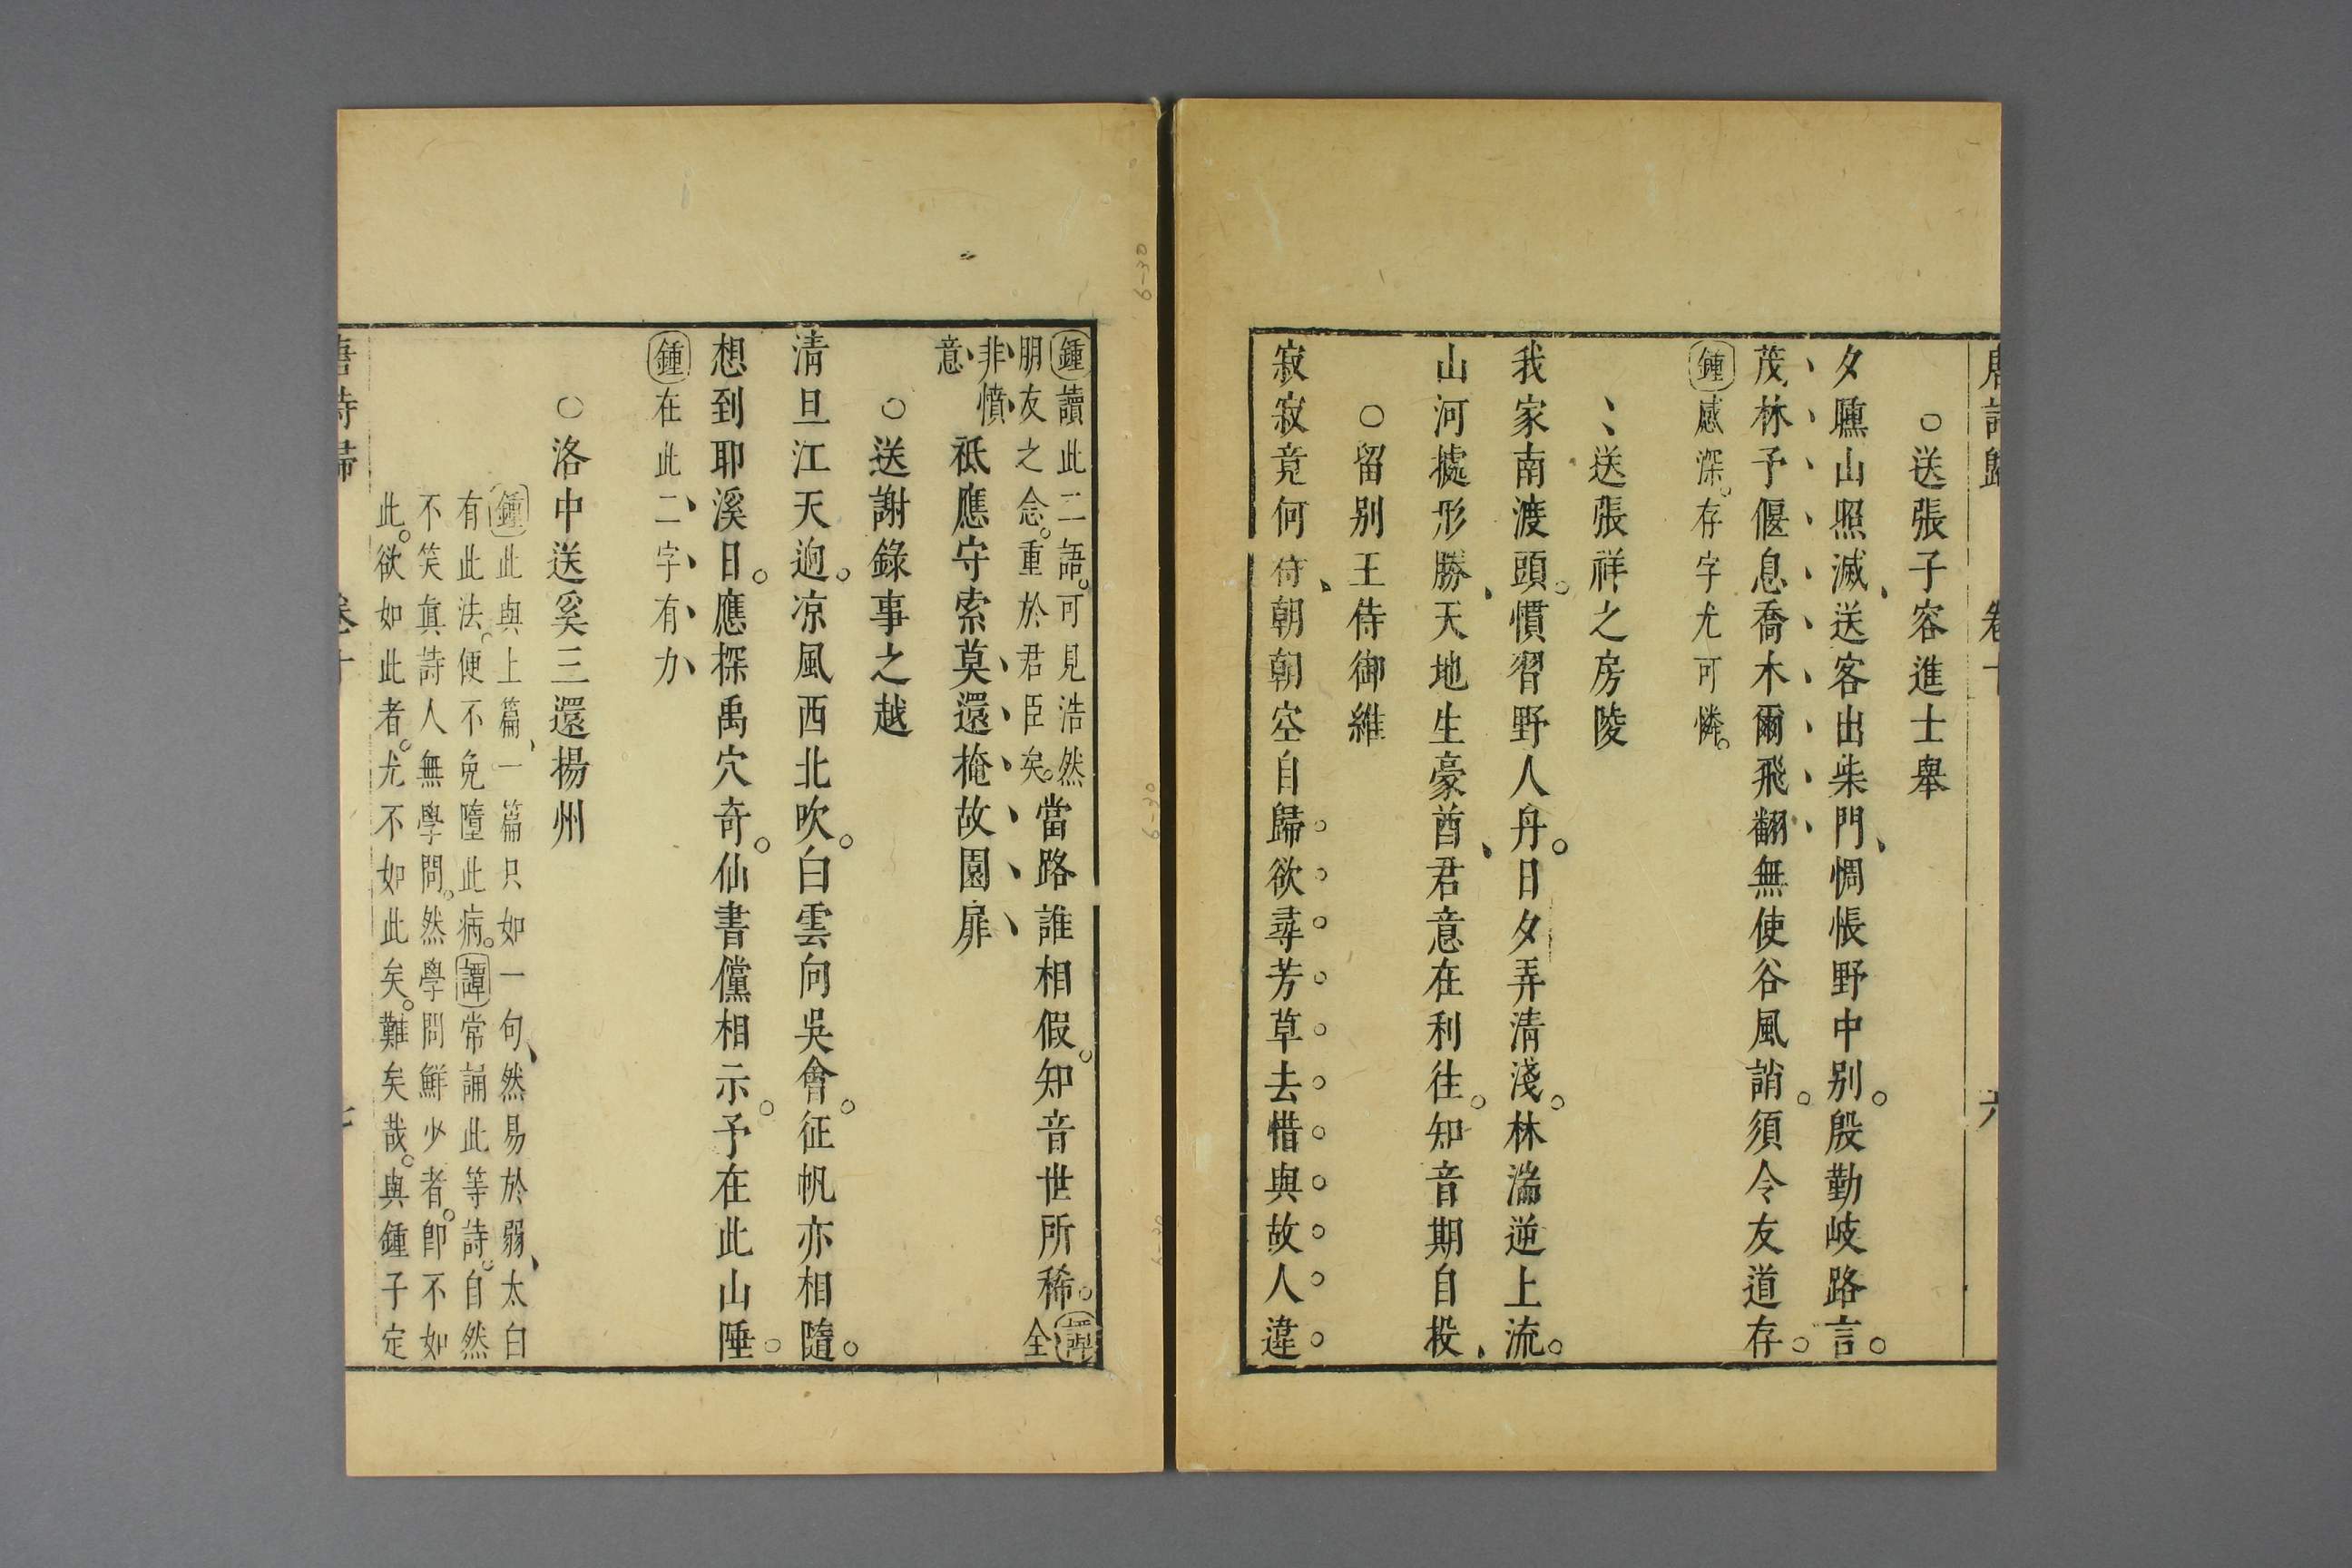 唐詩歸 卷十 六
○送張子容進士舉
夕曛山照滅送客出柴門惆悵野中別殷勤岐路言
茂林予偃息喬木爾飛翻無使谷風誚須令友道存
鍾感深存字尤可憐
送張祥之房陵
我家南渡頭慣習野人舟日夕弄清淺林湍逆上流
山河據形勝天地生豪酋君意在利往知音期自投
○留別王侍御維
寂寂竟何待朝朝空自歸欲尋芳草去惜與故人違
鍾讀此二語可見浩然
朋友之念重於君臣矣
當路誰相假知音世所稀
譚全
非憤
意
祗應守索莫還掩故園扉
○送謝錄事之越
清旦江天逈凉風西北吹白雲向吳會征帆亦相隨
想到耶溪日應探禹穴奇仙書儻相示予在此山陲
鍾在此二字有力
○洛中送奚三還揚州
鍾此與上篇一篇只如一句然易於弱太白
有此法便不免墮此病譚常誦此等詩自然
不笑眞詩人無學問然學問鮮少者卽不如
此欲如此者尤不如此矣難矣哉與鍾子定
唐詩歸 卷十 七
6-30
6-30
6-30